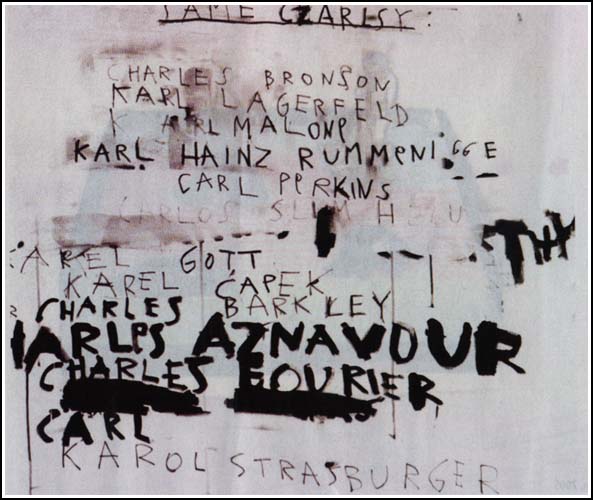 SAME CZARLSY:
CHARLES BRONSON
KARL LAGERFELD
KARL MALONE
KARL HAINZ RUMMENIGGE
CARL PERKINS
CARLOS SLIM HELU
AREL GOTT
KAREL ČAPEK
CHARLES BARKLEY
HARLES AZNAVOUR
CHARLES FOURIER
CARL
KAROL STRASBURGER